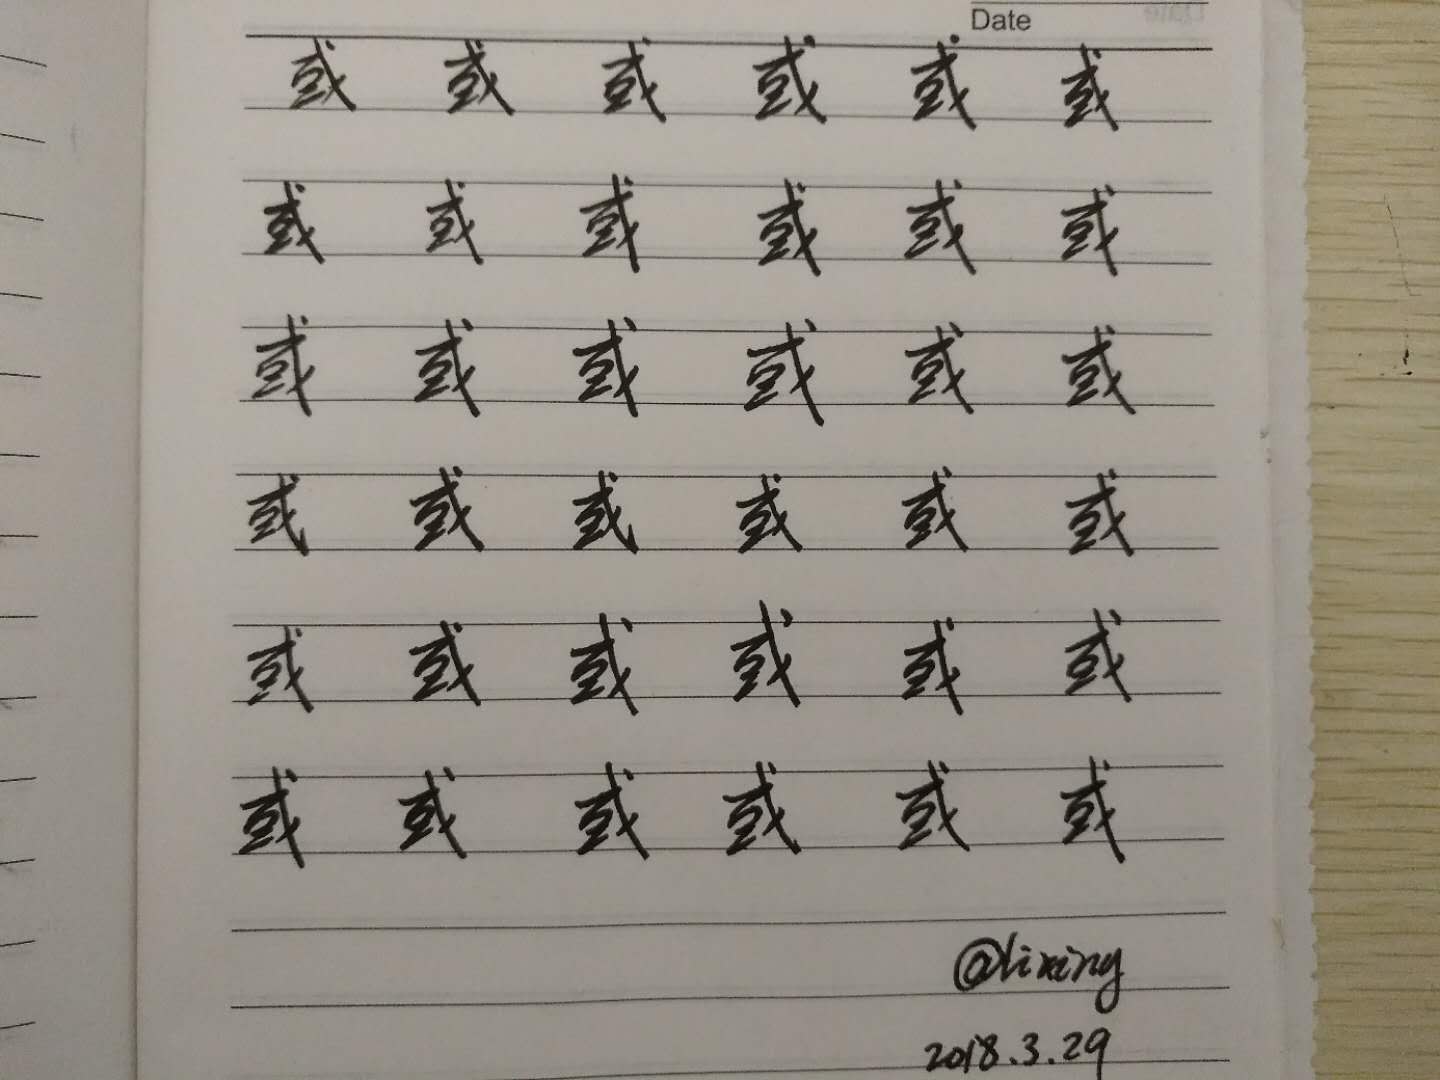 Date
或 或 或 或 或 或
或 或 或 或 或 或
或 或 或 或 或 或
或 或 或 或 或 或
或 或 或 或 或 或
或 或 或 或 或 或
@lixing
2018.3.29